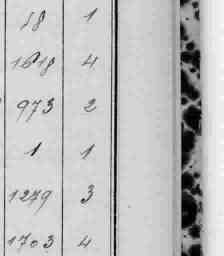 18 1
1618 4
973 2
1 1
1279 3
1703 4